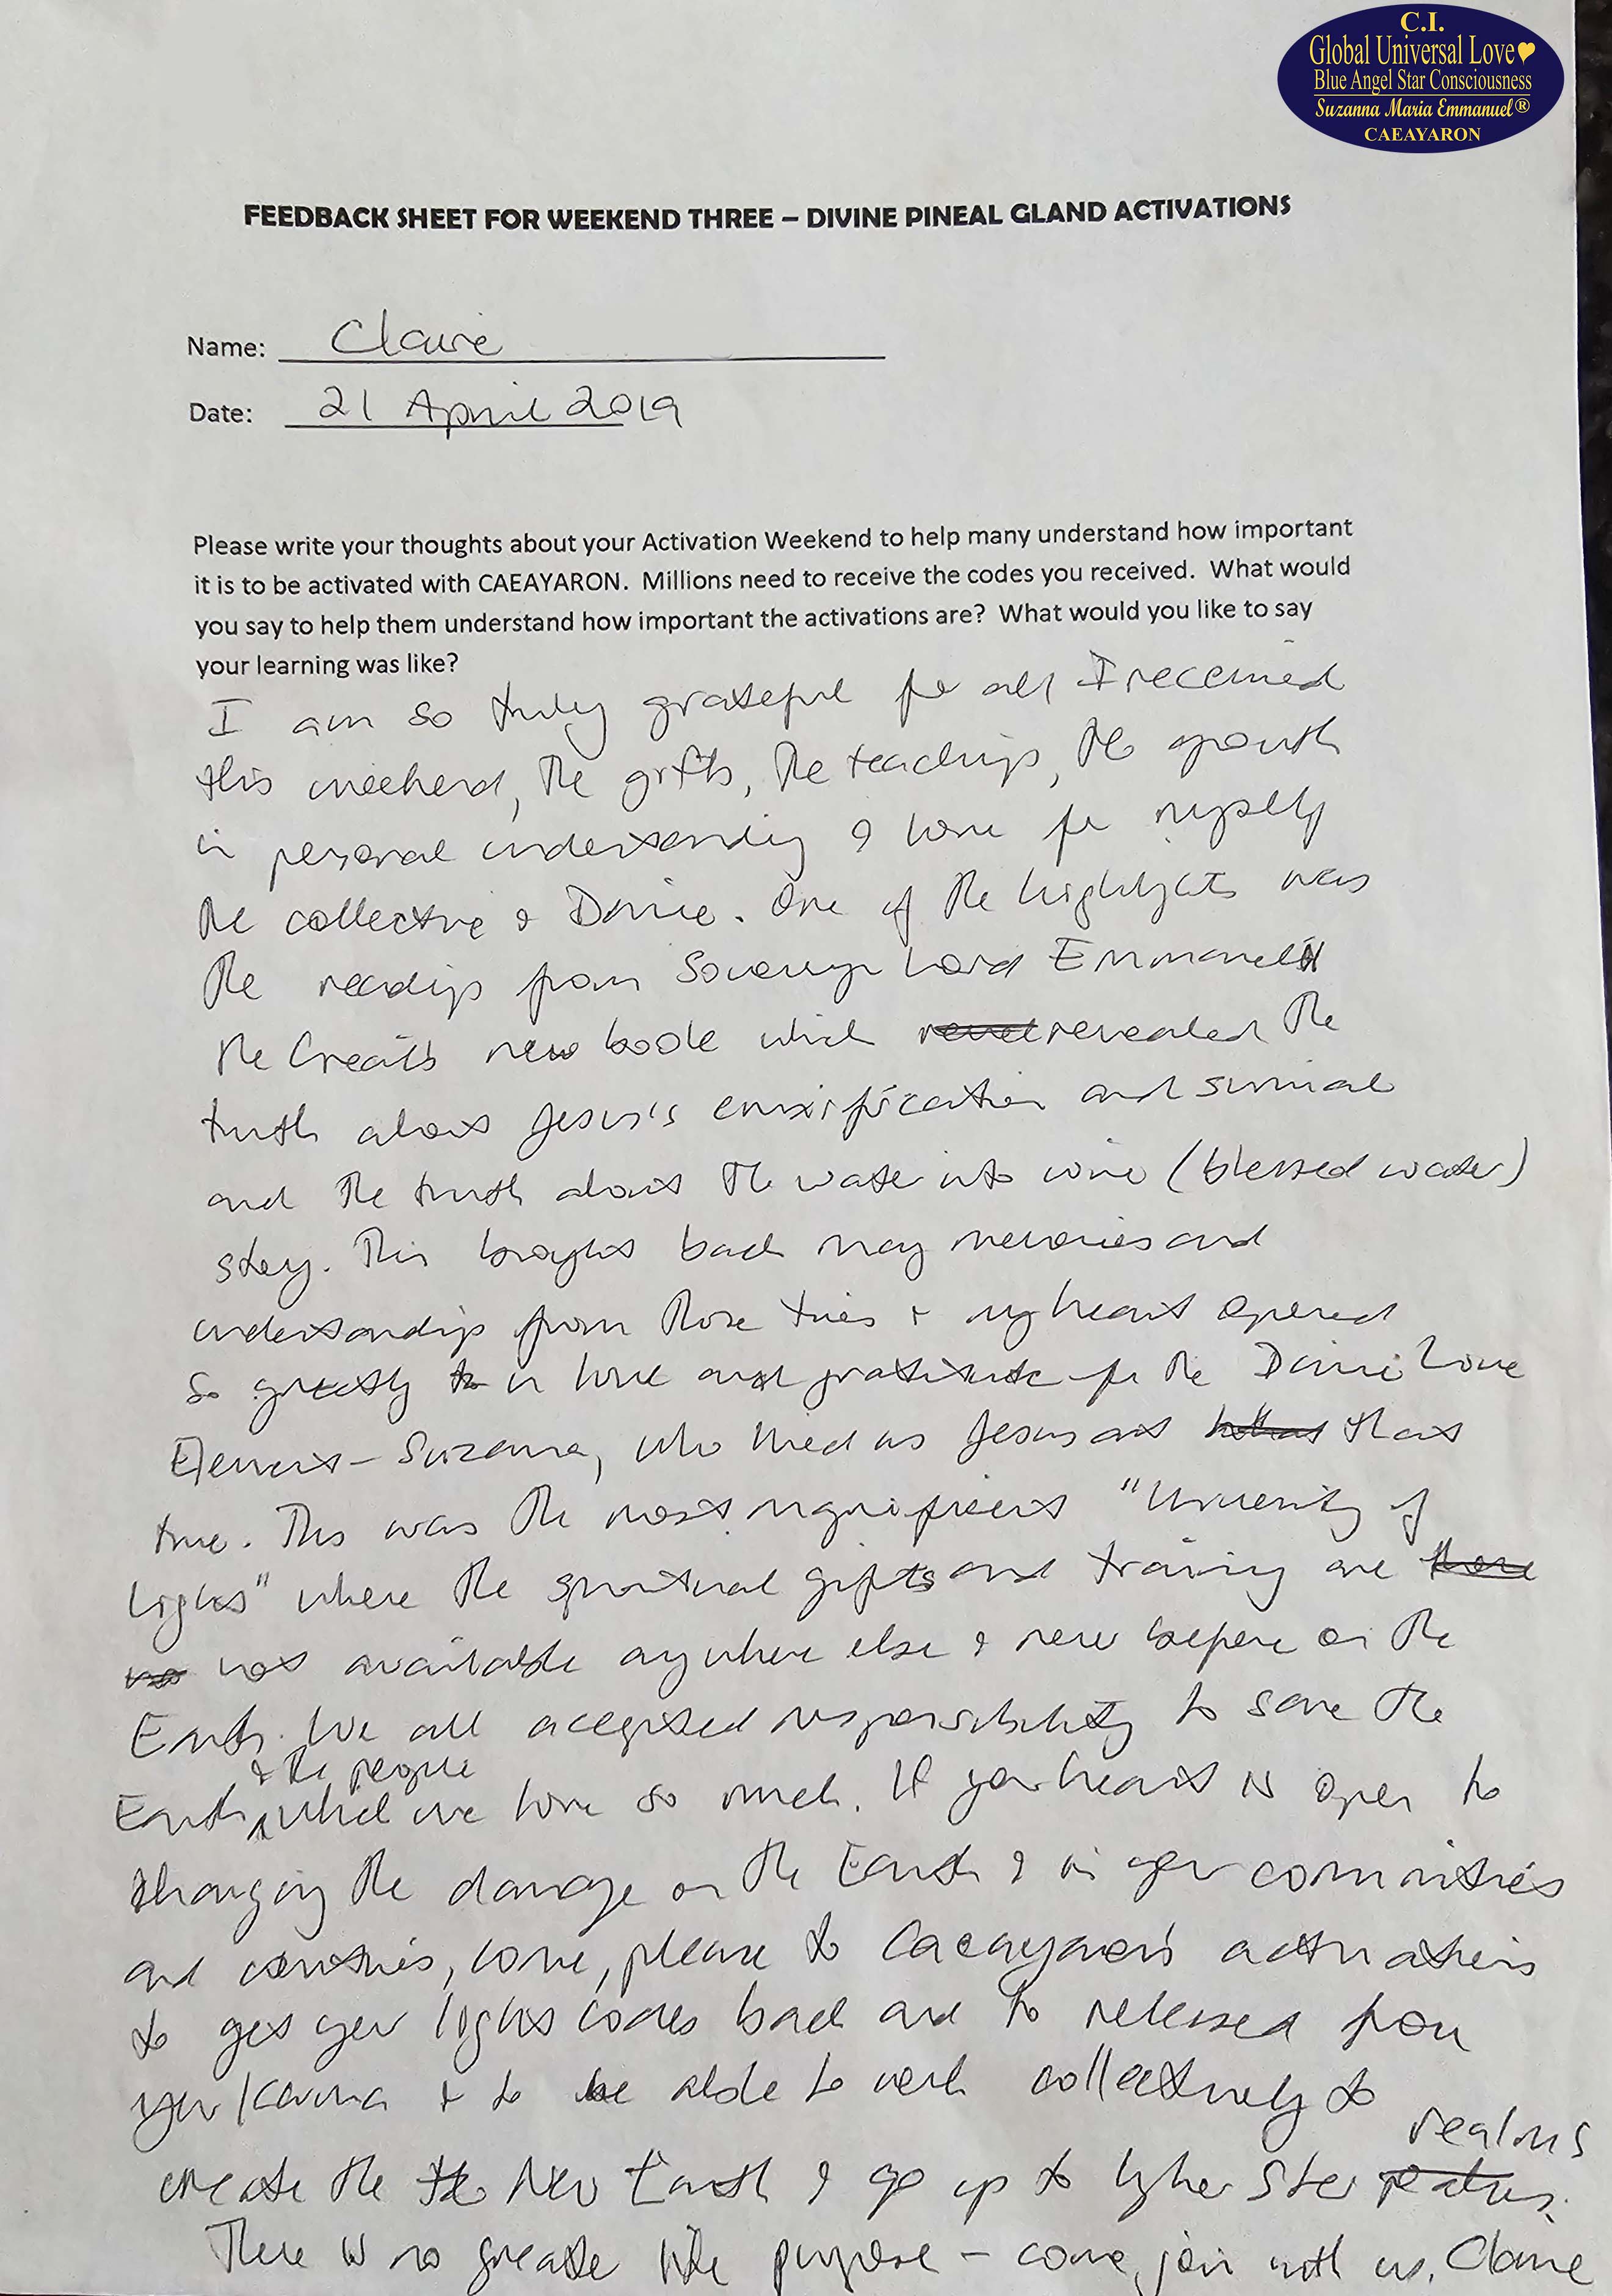 C.I.
Global Universal Love
Blue Angel Star Consciousness
Suzanna Maria Emmanuel®
CAEAYARON
FEEDBACK SHEET FOR WEEKEND THREE – DIVINE PINEAL GLAND ACTIVATIONS
Name: Claire
Date: 21 April 2019
Please write your thoughts about your Activation Weekend to help many understand how important
it is to be activated with CAEAYARON. Millions need to receive the codes you received. What would
you say to help them understand how important the activations are? What would you like to say
your learning was like?
I am so truly grateful for all I received
this weekend, the gifts, the teachings, the growth
in personal understanding & love for myself
the collective & Divine. One of the highlights was
the readings from Sovereign Lord Emmanuel
the Creator's new book which revealed the
truth about Jesus's crucifixication and survival
and the truth about the water into wine (blessed water)
story. This brought back many memories and
understandings from those times & my heart opened
so greatly in love and gratitude for the Divine Love
Element - Suzanna, who lived as Jesus at that
time. This was the most magnificent "University of
Light" where the spiritual gifts and training are
not available anywhere else & never before on the
Earth. We all accepted responsibility to save the
Earth & the people which we love so much. If your heart is open to
changing the damage on the Earth & in your communities
and countries, come, please to Caeayaron's activations
to get your lights codes back and to released from
your karma & to be able to work collectively to
create the New Earth & go up to higher Star realms
There is no greater life purpose - come, join with us, Claire